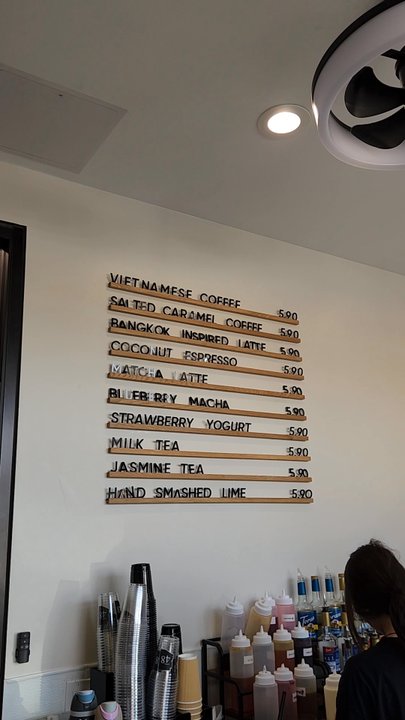 VIETNAMESE COFFEE 5.90
SALTED CARAMEL COFFEE 5.90
BANGKOK INSPIRED LATTE 5.90
COCONUT ESPRESSO 5.90
MATCHA LATTE 5.90
BLUEBERRY MACHA 5.90
STRAWBERRY YOGURT 5.90
MILK TEA 5.90
JASMINE TEA 5.90
HAND SMASHED LIME 5.90